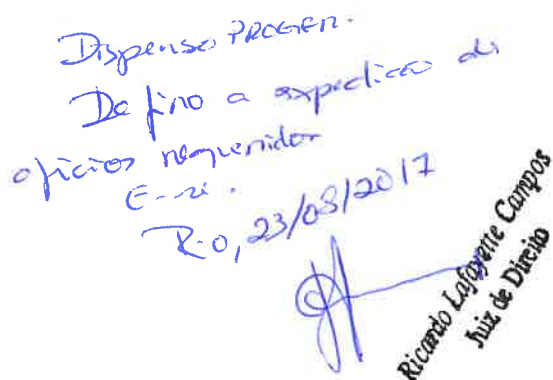 Dispenso PROGER.
Defiro a expedição de
ofícios requeridos
E-se.
R.O, 23/08/2017
Ricardo Lafayette Campos
Juiz de Direito